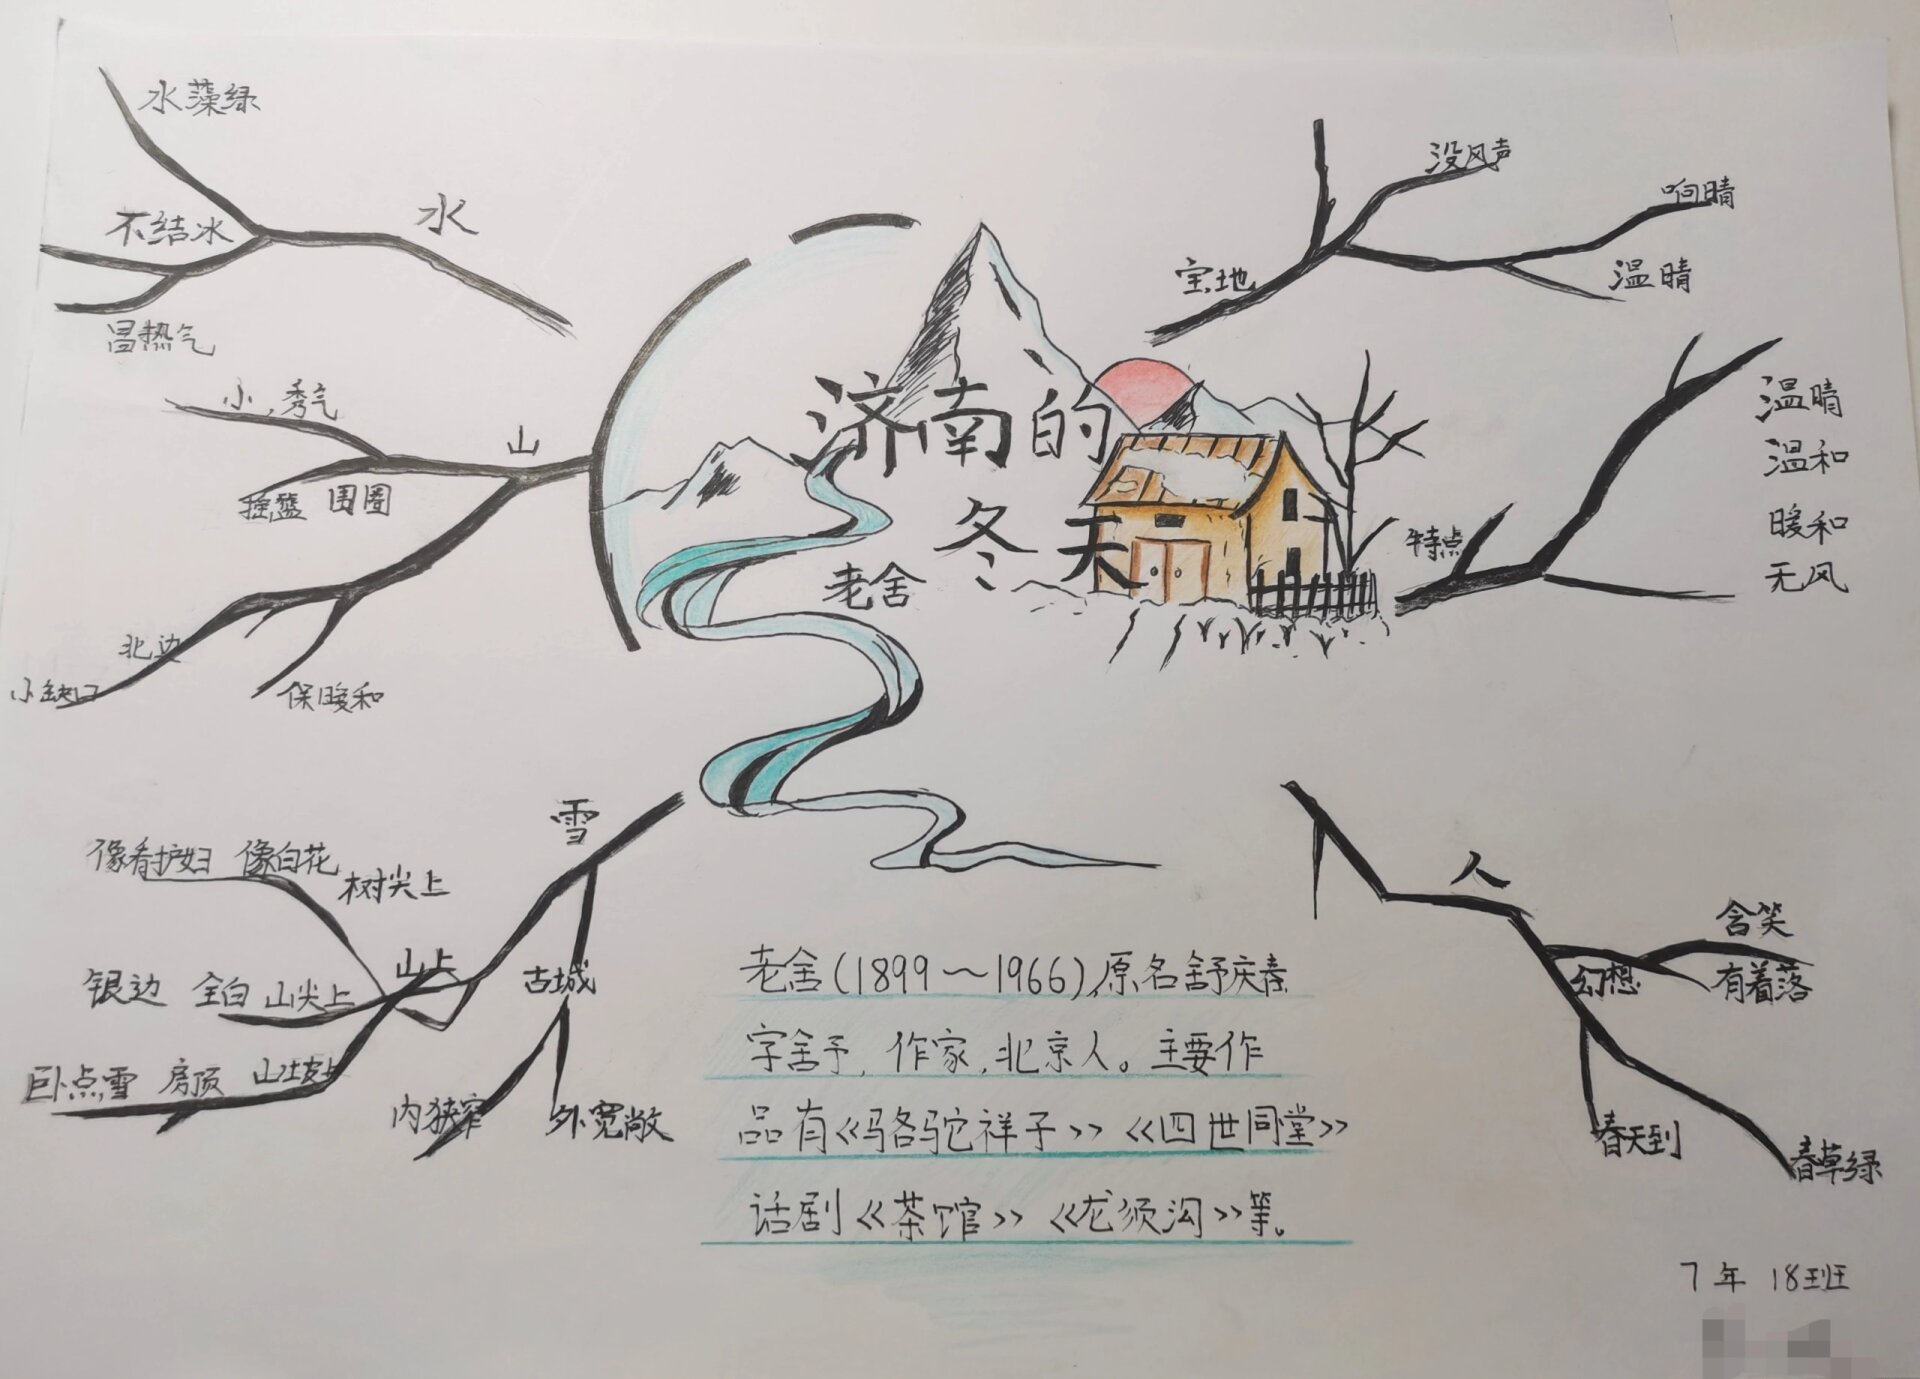 水藻绿
水
不结冰
冒热气
小,秀气
山
摇篮 围圈
北边
小缺口
保暖和
济南的
冬天
老舍
没风声
响晴
宝地
温晴
温晴
温和
特点
暖和
无风
雪
像看护妇 像白花
树尖上
山上
古城
银边 全白 山尖上
卧点雪 房顶 山坡上
内狭窄
外宽敞
人
含笑
幻想
有着落
春天到
春草绿
老舍(1899～1966),原名舒庆春
字舍予,作家,北京人。主要作
品有《骆驼祥子》《四世同堂》
话剧《茶馆》《龙须沟》等。
7年 18班